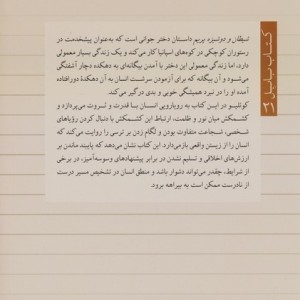 کتاب بابل ۳۲
شیطان و دوشیزه پریم داستان دختر جوانی است که به‌عنوان پیشخدمت در
رستوران کوچکی در کوه‌های اسپانیا کار می‌کند و یک زندگی بسیار معمولی
دارد، اما زندگی معمولی این دختر با آمدن بیگانه‌ای به دهکده دچار آشفتگی
می‌شود و آن بیگانه که برای آزمودن سرشت انسان به آن دهکدهٔ دورافتاده
آمده او را در نبرد همیشگی خوبی و بدی درگیر می‌کند.
کوئلیو در این کتاب به رویارویی انسان با قدرت و ثروت می‌پردازد و
کشمکش میان نور و ظلمت، ارتباط این کشمکش با دنبال کردن رؤیاهای
شخصی، شجاعت متفاوت بودن و لگام زدن بر ترسی را روایت می‌کند که
انسان را از زیستن واقعی بازمی‌دارد. این کتاب نشان می‌دهد که پایبند ماندن بر
ارزش‌های اخلاقی و تسلیم نشدن در برابر پیشنهادهای وسوسه‌آمیز، در برخی
از شرایط، چقدر می‌تواند دشوار باشد و منطق انسان در تشخیص مسیر درست
از نادرست ممکن است به بیراهه برود.